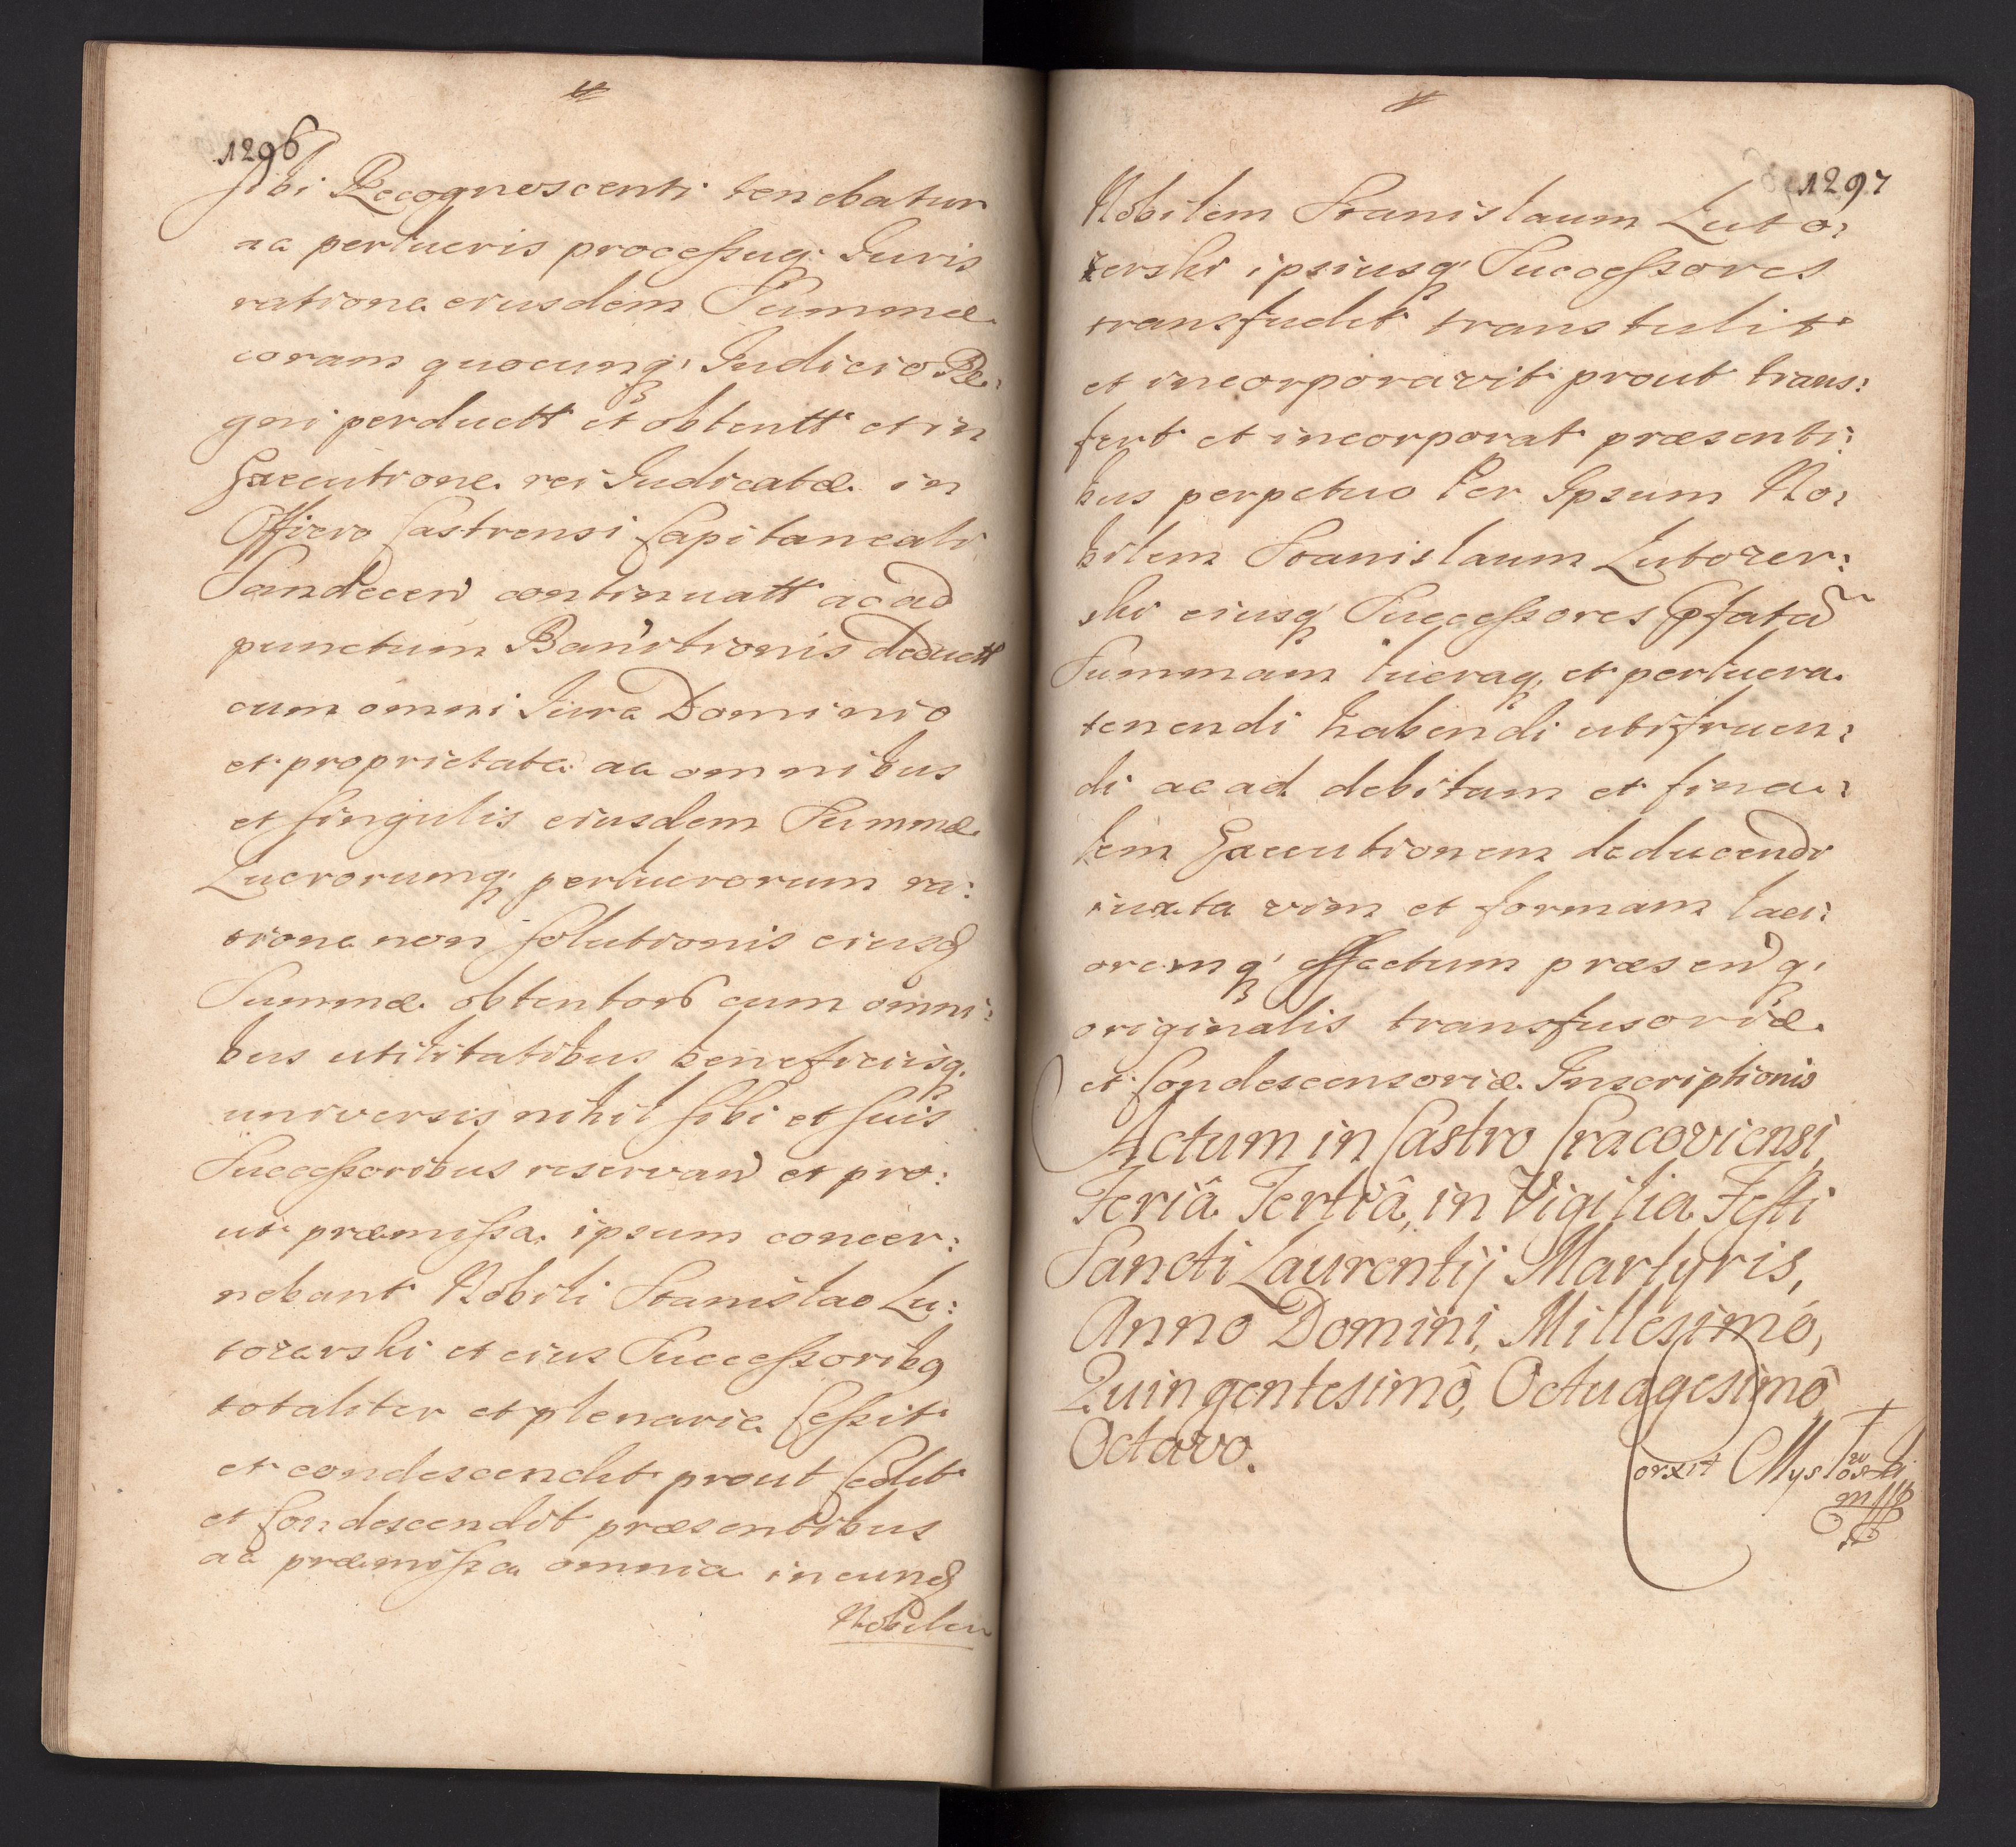 1296
sibi Recognoscenti tenebatur
ac perlucris processuq; Iuris
ratione eiusdem Summæ
coram quocunq; Iudicio Re:
gni perductt et obtentt et in
Executione rei Iudicatæ in
Officio Castrensi Capitaneali
Sandecen continuatt ac ad
punctum Bannitionis deductt
cum omni Iure Dominio
et proprietate ac omnibus
et singulis eiusdem Summæ
Lucrorumq; perlucrorum ra:
tione non solutionis eiusd
Summæ obtentors cum omni:
bus utilitatibus beneficiisq;
universis nihil sibi et suis
Successoribus reservan et pro:
ut præmissa ipsum concer:
nebant Nobili Stanislao Lu:
tozerski et eius Successoribq
totaliter et plenarie Cessit
et condescendit prout Cedit
et Condescendit præsentibus
ac præmissa omnia in eund
Nobilem
1297
Nobilem Stanislaum Luto:
zerski ipsiusq; Successores
transfudit transtulit
et incorporavit prout trans:
fert et incorporat præsenti:
bus perpetuo Per Ipsum No:
bilem Stanislaum Lutozer:
ski eiusq; Successores pfata
Summam lucraq; et perlucra
tenendi habendi utifruen:
di ac ad debitam et fina:
lem Executionem deducendi
iuxta vim et formam laci:
oremq; effectum præsenq;
originalis transfusoriæ
et Condescensoriæ Inscriptionis
Actum in Castro Cracoviensi
Feriâ Tertiâ, in Vigilia Festi
Sancti Laurentij Martyris,
Anno Domini, Millesimô,
Quingentesimô, Octuagesimô
Octavo.
Corxit Myst
mpp